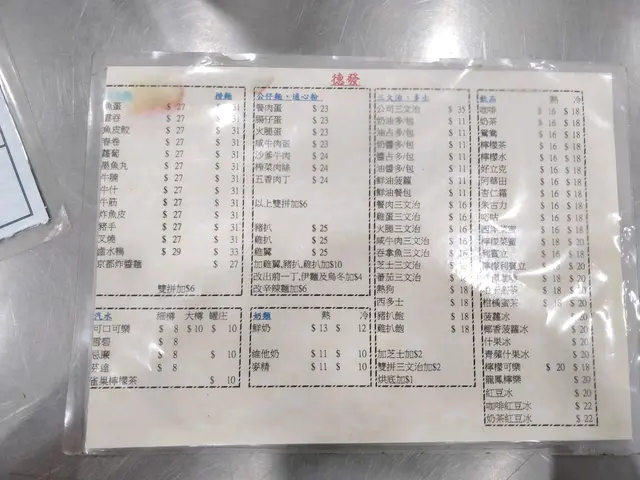 德發
撈麵
魚蛋 $ 27 $ 31
雲吞 $ 27 $ 31
魚皮餃 $ 27 $ 31
春卷 $ 27 $ 31
蘿蔔 $ 27 $ 31
墨魚丸 $ 27 $ 31
牛腩 $ 27 $ 31
牛什 $ 27 $ 31
牛筋 $ 27 $ 31
炸魚皮 $ 27 $ 31
豬手 $ 27 $ 31
叉燒 $ 27 $ 31
滷水鴨 $ 29 $ 33
京都炸醬麵 $ 27
雙拼加$6
公仔麵、通心粉
餐肉蛋 $ 23
腸仔蛋 $ 23
火腿蛋 $ 23
咸牛肉蛋 $ 23
沙爹牛肉 $ 24
榨菜肉絲 $ 24
五香肉丁 $ 24
以上雙拼加$6
豬扒 $ 25
雞扒 $ 25
雞翼 $ 25
加雞翼,豬扒,雞扒加$10
改出前一丁,伊麵及烏冬加$4
改辛辣麵加$6
三文治、多士
公司三文治 $ 35
奶油多/包 $ 11
油占多/包 $ 11
奶醬多/包 $ 11
醬占多/包 $ 11
油醬多/包 $ 11
鮮油菠蘿 $ 11
鮮油餐包 $ 11
餐肉三文治 $ 16
雞蛋三文治 $ 16
火腿三文治 $ 16
咸牛肉三文治 $ 16
吞拿魚三文治 $ 16
芝士三文治 $ 16
番茄三文治 $ 16
熱狗 $ 18
西多士 $ 18
豬扒飽 $ 18
雞扒飽 $ 18
加芝士加$2
雙拼三文治加$2
烘底加$1
飲品 熱 冷
咖啡 $ 16 $ 18
奶茶 $ 16 $ 18
鴛鴦 $ 16 $ 18
檸檬茶 $ 16 $ 18
檸檬水 $ 16 $ 18
好立克 $ 16 $ 18
阿華田 $ 16 $ 18
杏仁霜 $ 16 $ 18
朱古力 $ 16 $ 18
$ 16 $ 18
西洋菜蜜
檸檬菜蜜
利賓立
檸檬利賓立
柑橘蜜茶
菠蘿冰 $ 20
椰香菠蘿冰 $ 20
什果冰 $ 20
青蘋什果冰 $ 20
檸檬可樂 $ 20 $ 18
龍鳳檸樂 $ 20
紅豆冰 $ 20
咖啡紅豆冰 $ 22
奶茶紅豆冰 $ 22
汽水 細樽 大樽 罐庄
可口可樂 $ 8 $ 10 $ 10
雪碧 $ 8
忌廉 $ 8 $ 10
芬達 $ 8
雀巢檸檬茶 $ 10
奶類 熱 冷
鮮奶 $ 13 $ 12
維他奶 $ 11 $ 10
麥精 $ 11 $ 10